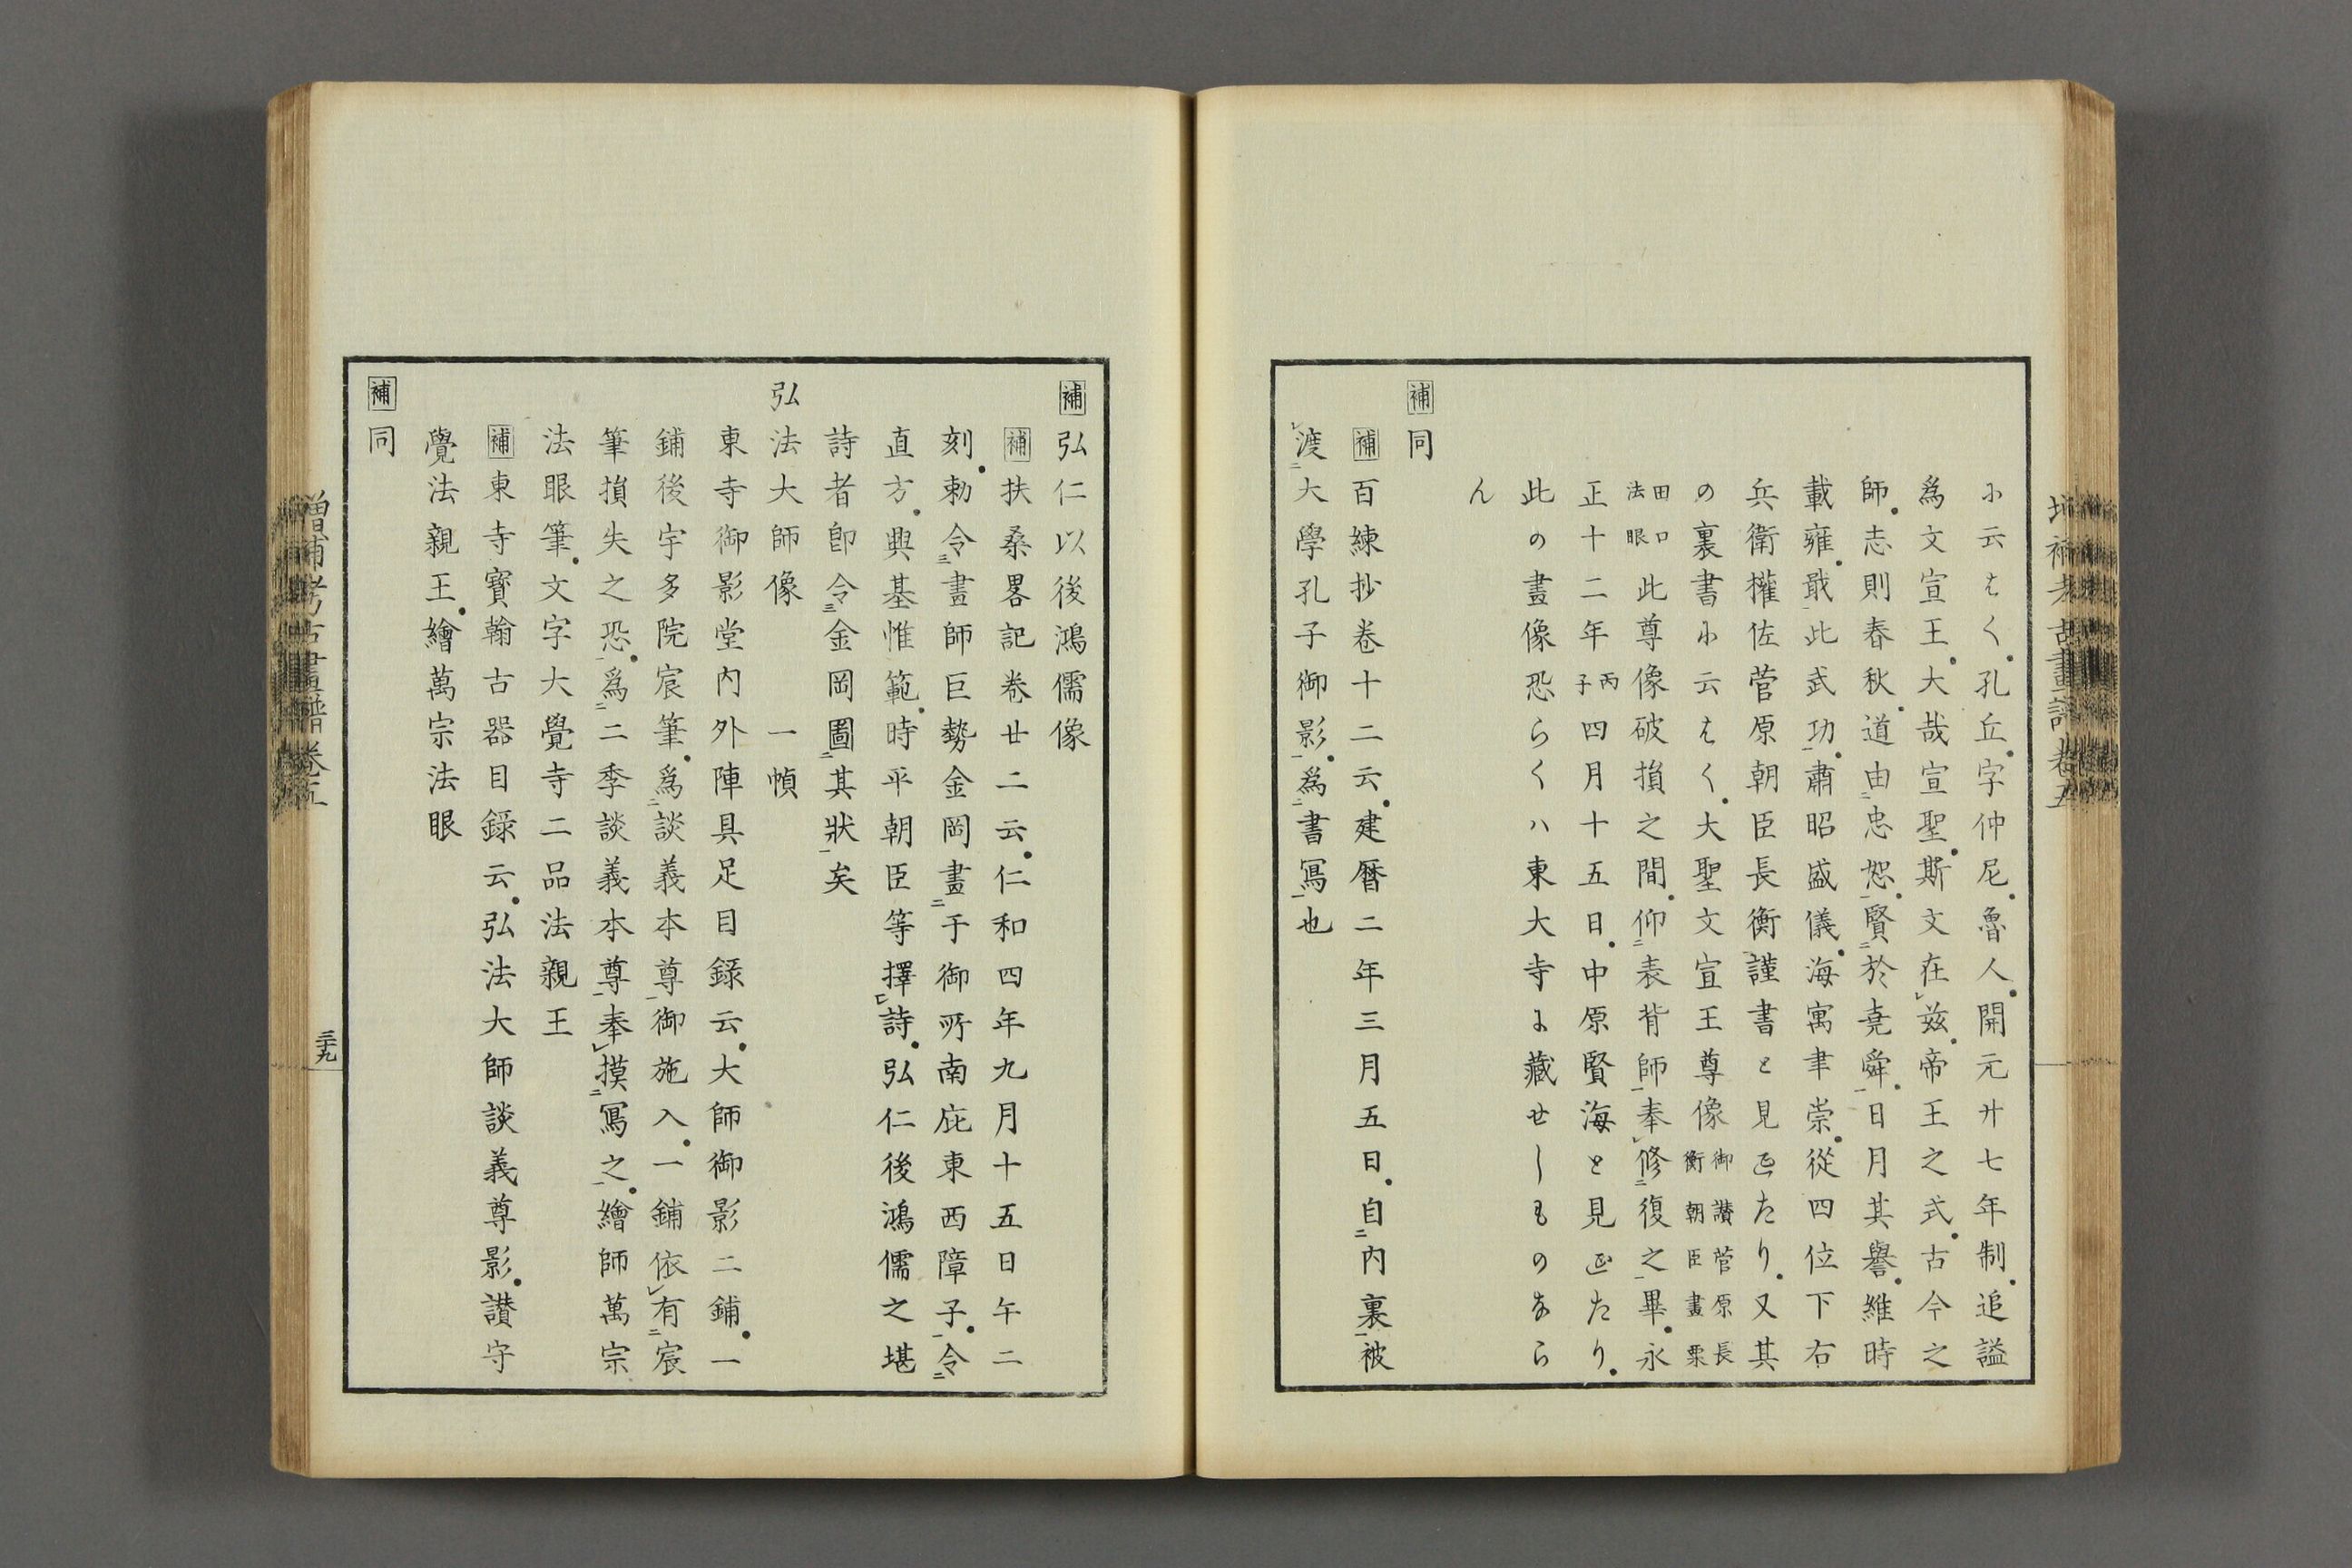 小云はく孔丘字仲尼魯人開元廿七年制追謚
為文宣王大哉宣聖斯文在茲帝王之式古今之
師志則春秋道由忠恕賢於堯舜日月其譽維時
載雍戢此武功肅昭盛儀海寓聿崇從四位下右
兵衛權佐菅原朝臣長衡謹書と見江たり又其
の裏書小云はく大聖文宣王尊像御讃菅原長衡朝臣畫栗
田口法眼此尊像破損之間仰表背師奉修復之畢永
正十二年丙子四月十五日中原賢海と見江たり
此の畫像恐らくハ東大寺に藏せしものなら
ん
補同
補百練抄卷十二云建曆二年三月五日自內裏被
渡大學孔子御影為書寫也
補弘仁以後鴻儒像
補扶桑畧記卷廿二云仁和四年九月十五日午二
刻勅令畫師巨勢金岡畫于御所南庇東西障子令
直方興基惟範時平朝臣等擇詩弘仁後鴻儒之堪
詩者卽令金岡圖其狀矣
弘法大師像 一幀
東寺御影堂內外陣具足目錄云大師御影二鋪一
鋪後宇多院宸筆為談義本尊御施入一鋪依有宸
筆損失之恐為二季談義本尊奉摸寫之繪師萬宗
法眼筆文字大覺寺二品法親王
補東寺寳翰古器目錄云弘法大師談義尊影讃守
覺法親王繪萬宗法眼
補同
增補考古畫譜卷五
三十九